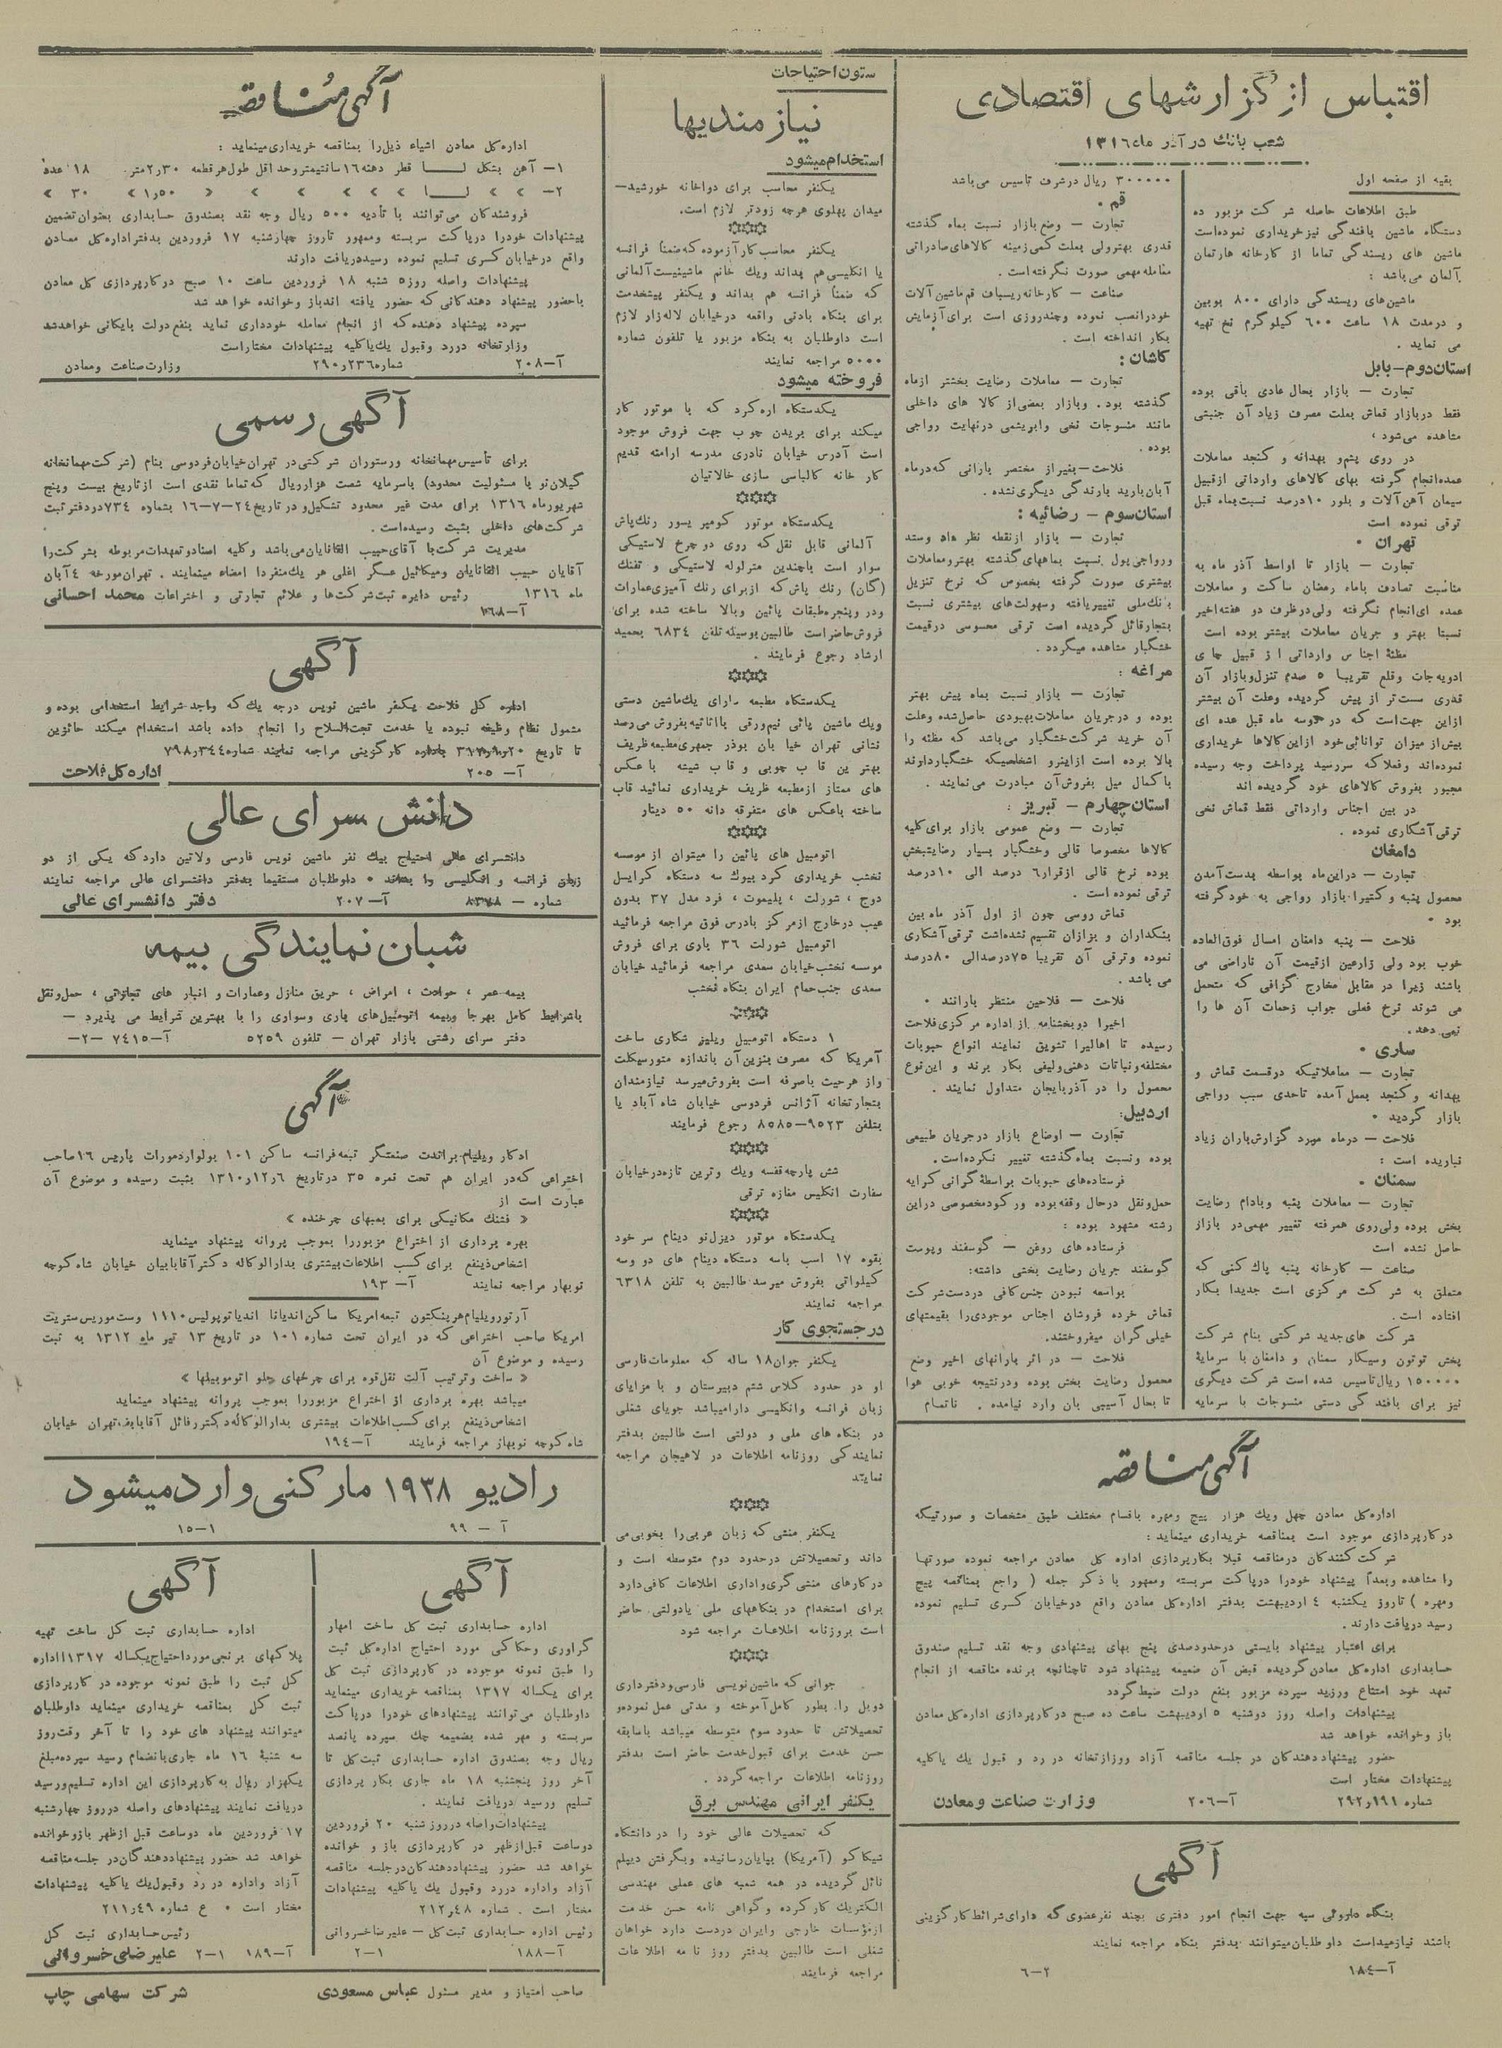 اقتباس از گزارشهای اقتصادی
شعب بانک در آذر ماه ۱۳۱۶
بقیه از صفحه اول
طبق اطلاعات حاصله شرکت مزبور ده
دستگاه ماشین بافندگی نیز خریداری نموده است
ماشین های ریسندگی تماما از کارخانه هارتمان
آلمان می باشد :
ماشین‌های ریسندگی دارای ۸۰۰ بوبین
و درمدت ۱۸ ساعت ۶۰۰ کیلوگرم نخ تهیه
می نماید .
استان دوم – بابل
تجارت – بازار بحال عادی باقی بوده
فقط دربازار قماش بعلت مصرف زیاد آن جنبشی
مشاهده می‌شود ،
در روی پشم و پهدانه و کنجد معاملات
عمده انجام گرفته بهای کالاهای وارداتی ازقبیل
سیمان آهن آلات و بلور ۱۰درصد نسبت بماه قبل
ترقی نموده است
تهران •
تجارت – بازار تا اواسط آذر ماه به
مناسبت تصادف باماه رمضان ساکت و معاملات
عمده ای انجام نگرفته ولی درظرف دو هفته اخیر
نسبتا بهتر و جریان معاملات بیشتر بوده است
مظنۀ اجناس وارداتی از قبیل چای
ادویه جات و قلع تقریبا ۵ صدم تنزل و بازار آن
قدری سست‌تر از پیش گردیده وعلت آن بیشتر
ازاین جهت است که در سه ماه قبل عده ای
بیش از میزان توانائی خود ازاین کالاها خریداری
نموده‌اند وفعلا که سررسید پرداخت وجه رسیده
مجبور بفروش کالاهای خود گردیده اند
در بین اجناس وارداتی فقط قماش نخی
ترقی آشکاری نموده .
دامغان
تجارت – دراین ماه بواسطه بدست آمدن
محصول پنبه و کتیرا بازار رواجی به خود گرفته
بود •
فلاحت – پنبه دامغان امسال فوق العاده
خوب بود ولی زارعین ازقیمت آن ناراضی می
باشند زیرا در مقابل مخارج گزافی که متحمل
می شوند نرخ فعلی جواب زحمات آن ها را
نمی دهد .
ساری •
تجارت – معاملاتیکه درقسمت قماش و
پهدانه و کنجد بعمل آمده تاحدی سبب رواجی
بازار گردید •
فلاحت – درماه مورد گزارش باران زیاد
نباریده است :
سمنان •
تجارت – معاملات پنبه وبادام رضایت
بخش بوده ولی روی همرفته تغییر مهمی در بازار
حاصل نشده است
صناعت – کارخانه پنبه پاک کنی که
متعلق به شرکت مرکزی است جدیدا بکار
افتاده است .
شرکت های جدید شرکتی بنام شرکت
پخش توتون وسیگار سمنان و دامغان با سرمایۀ
۱۵۰۰۰۰ ریال تاسیس شده است شرکت دیگری
نیز برای بافندگی دستی منسوجات با سرمایه
۳۰۰۰۰۰ ریال درشرف تاسیس می باشد
قم •
تجارت – وضع بازار نسبت بماه گذشته
قدری بهتر ولی بعلت کمی زمینه کالاهای صادراتی
معامله مهمی صورت نگرفته است .
صناعت – کارخانه ریسباف قم ماشین آلات
خودرا نصب نموده و چندروزی است برای آزمایش
بکار انداخته است .
کاشان :
تجارت – معاملات رضایت بخشتر ازماه
گذشته بود . وبازار بعضی از کالا های داخلی
مانند منسوجات نخی وابریشمی درنهایت رواجی
بوده .
فلاحت – بغیر از مختصر بارانی که درماه
آبان بارید بارندگی دیگری نشده .
استان سوم – رضائیه :
تجارت – بازار ازنقطه نظر داد وستد
ورواجی پول نسبت بماههای گذشته بهتر ومعاملات
بیشتری صورت گرفته بخصوص که نرخ تنزیل
بانک ملی تغییر یافته وسهولت‌های بیشتری نسبت
بتجار قائل گردیده است ترقی محسوسی درقیمت
خشگبار مشاهده میگردد .
مراغه :
تجارت – بازار نسبت بماه پیش بهتر
بوده و درجریان معاملات بهبودی حاصل شده وعلت
آن خرید شرکت خشگبار می‌باشد که مظنه را
بالا برده است ازاینرو اشخاصیکه خشگبار دارند
باکمال میل بفروش آن مبادرت می‌نمایند .
استان چهارم – تبریز :
تجارت – وضع عمومی بازار برای کلیه
کالاها مخصوصا قالی وخشگبار بسیار رضایتبخش
بوده نرخ قالی ازقرار ۶ درصد الی ۱۰ درصد
ترقی نموده است .
قماش روسی چون از اول آذر ماه بین
بنکداران و بزازان تقسیم نشده است ترقی آشکاری
نموده وترقی آن تقریبا ۷۵ درصدالی ۸۰ درصد
می باشد .
فلاحت – فلاحین منتظر بارانند •
اخیرا دو بخشنامه از اداره مرکزی فلاحت
رسیده تا اهالیرا تشویق نمایند انواع حبوبات
مختلفه ونباتات دهنی ولیفی بکار برند و این نوع
محصول را در آذربایجان متداول نمایند .
اردبیل:
تجارت – اوضاع بازار درجریان طبیعی
بوده ونسبت بماه گذشته تغییر نکرده است.
فرستاده‌های حبوبات براسطۀ گرانی کرایه
حمل ونقل درحال وقفه بوده ورکود مخصوصی دراین
رشته مشهود بوده :
فرستاده های روغن – گوسفند وپوست
گوسفند جریان رضایت بخشی داشته:
بواسعه نبودن جنس کافی دردست شرکت
قماش خرده فروشان اجناس موجودی را بقیمتهای
خیلی گران میفروختند.
فلاحت – در اثر بارانهای اخیر وضع
محصول رضایت بخش بوده ودرنتیجه خوبی هوا
تا بحال آسیبی بان وارد نیامده . ناتمام
آگهی مناقصه
اداره کل معادن چهل ویک هزار پیچ ومهره باقسام مختلف طبق مشخصات و صورتیکه
در کارپردازی موجود است بمناقصه خریداری مینماید :
شرکت کنندگان درمناقصه قبلا بکارپردازی اداره کل معادن مراجعه نموده صورتها
را مشاهده وبعداً پیشنهاد خودرا درپاکت سربسته وممهور با ذکر جمله ( راجع بمناقصه پیچ
ومهره ) تاروز یکشنبه ۴ اردیبهشت بدفتر اداره کل معادن واقع درخیابان کسری تسلیم نموده
رسید دریافت دارند .
برای اعتبار پیشنهاد بایستی درحدود صدی پنج بهای پیشنهادی وجه نقد تسلیم صندوق
حسابداری اداره کل معادن گردیده قبض آن ضمیمه پیشنهاد شود تاچنانچه برنده مناقصه از انجام
تعهد خود امتناع ورزید سپرده مزبور بنفع دولت ضبط گردد
پیشنهادات واصله روز دوشنبه ۵ اردیبهشت ساعت ده صبح درکارپردازی اداره کل معادن
باز وخوانده خواهد شد
حضور پیشنهاد دهندکان در جلسه مناقصه آزاد ووزارتخانه در رد و قبول یک یاکلیه
پیشنهادات مختار است
شماره ۲۹۲٫۱۹۱ آ–۲۰۶ وزارت صناعت و معادن
آگهی
بنگاه داروئی سپه جهت انجام امور دفتری بچند نفر عضوی که دارای شرائط کارگزینی
باشند نیازمند است داوطلبان میتوانند بدفتر بنگاه مراجعه نمایند
آ–۱۸۴ ۶–۲
ستون احتیاجات
نیازمندیها
استخدام میشود
یکنفر محاسب برای دواخانه خورشید–
میدان پهلوی هرچه زودتر لازم است.
یکنفر محاسب کارآزموده که ضمناً فرانسه
یا انگلیسی هم بداند ویک خانم ماشینیست آلمانی
که ضمناً فرانسه هم بداند و یکنفر پیشخدمت
برای بنگاه بادنی واقعه درخیابان لاله‌زار لازم
است داوطلبان به بنگاه مزبور یا تلفون شماره
۵۰۰۰ مراجعه نمایند
فروخته میشود
یکدستگاه اره گرد که با موتور کار
میکند برای بریدن چوب جهت فروش موجود
است آدرس خیابان نادری مدرسه ارامنه قدیم
کارخانه کالباسی سازی خالاتیان
یکدستگاه موتور کومپرسور رنگ پاش
آلمانی قابل نقل که روی دو چرخ لاستیکی
سوار است باچندین متر لوله لاستیکی و تفنگ
(گان) رنگ پاش که از برای رنگ آمیزی عمارات
ودر و پنجره طبقات پائین وبالا ساخته شده برای
فروش حاضر است طالبین بوسیله تلفن ۶۸۳۴ بحمید
ارشاد رجوع فرمایند .
یکدستگاه مطبعه دارای یک ماشین دستی
ویک ماشین پائی نیم ورقی با اثاثیه بفروش می‌رسد
نشانی تهران خیابان بوذر جمهری مطبعه ظریف
بهترین قاب چوبی و قاب شیشه باعکس
های ممتاز از مطبعه ظریف خریداری نمائید قاب
ساخته باعکس های متفرقه دانه ۵۰ دینار
اتومبیل های پائین را میتوان از موسسه
نخشب خریداری کرد بیوک سه دستگاه کرایسلر
دوج ، شورلت ، پلیموت ، فرد مدل ۳۷ بدون
عیب درخارج از مرکز بادرس فوق مراجعه فرمائید
اتومبیل شورلت ۳۶ باری برای فروش
موسسه نخشب خیابان سعدی مراجعه فرمائید خیابان
سعدی جنب حمام ایران بنگاه نخشب
۱ دستگاه اتومبیل ویلیز شکاری ساخت
آمریکا که مصرف بنزین آن باندازه متورسیکلت
واز هرحیث باصرفه است بفروش میرسد نیازمندان
بتجارتخانه آژانس فردوسی خیابان شاه آباد یا
بتلفن ۹۵۲۳–۸۵۸۵ رجوع فرمایند
شش پارچه قفسه ویک ویترین تازه درخیابان
سفارت انگلیس مغازه ترقی
یکدستگاه موتور دیزل نو دینام سر خود
بقوه ۱۷ اسب باسه دستگاه دینام های دو وسه
کیلواتی بفروش میرسد طالبین به تلفن ۶۳۱۸
مراجعه نمایند
درجستجوی کار
یکنفر جوان ۱۸ ساله که معلومات فارسی
او در حدود کلاس ششم دبیرستان و با مزایای
زبان فرانسه وانگلیسی دارا میباشد جویای شغلی
در بنگاه های ملی و دولتی است طالبین بدفتر
نمایندگی روزنامه اطلاعات در لاهیجان مراجعه
نمایند
یکنفر منشی که زبان عربی را بخوبی می
داند وتحصیلاتش درحدود دوم متوسطه است و
درکارهای منشی گری واداری اطلاعات کافی دارد
برای استخدام در بنگاههای ملی یادولتی حاضر
است بروزنامه اطلاعات مراجعه شود
جوانی که ماشین نویسی فارسی و دفترداری
دوبل را بطور کامل آموخته و مدتی عمل نموده و
تحصیلاتش تا حدود سوم متوسطه میباشد باسابقه
حسن خدمت برای قبول خدمت حاضر است بدفتر
روزنامه اطلاعات مراجعه گردد .
یکنفر ایرانی مهندس برق
که تحصیلات عالی خود را در دانشگاه
شیکاگو (آمریکا) بپایان رسانیده وبگرفتن دیپلم
نائل گردیده در همه شعبه های عملی مهندسی
الکتریک کار کرده و گواهی نامه حسن خدمت
از مؤسسات خارجی وایران دردست دارد خواهان
شغلی است طالبین بدفتر روزنامه اطلاعات
مراجعه فرمایند
آگهی مناقصه
اداره کل معادن اشیاء ذیل را بمناقصه خریداری مینماید :
۱– آهن بشکل قطر دهنه ۱۶ سانتیمتر وحداقل طول هر قطعه ۲٫۳۰ متر ۱۸ عدد
۲– » » » » » » » ۱٫۵۰ » ۳۰ »
فروشندگان می‌توانند با تأدیه ۵۰۰ ریال وجه نقد بصندوق حسابداری بعنوان تضمین
پیشنهادات خودرا درپاکت سربسته وممهور تاروز چهارشنبه ۱۷ فروردین بدفتر اداره کل معادن
واقع درخیابان کسری تسلیم نموده رسید دریافت دارند
پیشنهادات واصله روز ۵ شنبه ۱۸ فروردین ساعت ۱۰ صبح درکارپردازی کل معادن
باحضور پیشنهاد دهندکانی که حضور یافته اند باز وخوانده خواهد شد
سپرده پیشنهاد دهنده که از انجام معامله خودداری نماید بنفع دولت بایکانی خواهد شد
وزارتخانه دررد وقبول یک یاکلیه پیشنهادات مختار است
آ–۲۰۸ شماره ۲۹۰٫۲۳۶ وزارت صناعت ومعادن
آگهی رسمی
برای تأسیس مهمانخانه ورستوران شرکتی در تهران خیابان فردوسی بنام (شرکت مهمانخانه
گیلان نو با مسئولیت محدود) باسرمایه شصت هزار ریال که تماما نقدی است از تاریخ بیست وپنج
شهریور ماه ۱۳۱۶ برای مدت غیر محدود تشکیل و در تاریخ ۲۴–۷–۱۶ بشماره ۷۳۴ دردفتر ثبت
شرکت های داخلی بثبت رسیده است .
مدیریت شرکت با آقای حبیب القانایان می‌باشد وکلیه اسناد وتعهدات مربوطه بشرکت را
آقایان حبیب القانایان ومیکائیل عسگر اغلی هر یک منفردا امضاء مینمایند . تهران مورخه ۴ آبان
ماه ۱۳۱۶ رئیس دایره ثبت شرکت‌ها و علائم تجارتی و اختراعات محمد احسانی
آگهی
اداره کل فلاحت یکنفر ماشین نویس درجه یک که واجد شرایط استخدامی بوده و
مشمول نظام وظیفه نبوده یا خدمت تحت‌السلاح را انجام داده باشد استخدام میکند حائزین
تا تاریخ ۲۰ کارگزینی مراجعه نمایند شماره ۷۹۸٫۳۴۴
آ–۲۰۵ اداره کل فلاحت
دانش سرای عالی
دانشسرای عالی احتیاج بیک نفر ماشین نویس فارسی ولاتین دارد که یکی از دو
زبان فرانسه و انگلیسی را بداند • داوطلبان مستقیما بدفتر دانشسرای عالی مراجعه نمایند
شماره – آ–۲۰۷ دفتر دانشسرای عالی
شبان نمایندگی بیمه
بیمه عمر ، حوادث ، امراض ، حریق منازل وعمارات و انبار های تجارتی ، حمل ونقل
باشرایط کامل بهرجا وبیمه اتومبیل‌های باری وسواری را با بهترین شرایط می پذیرد –
دفتر سرای رشتی بازار تهران – تلفون ۵۲۵۹ آ–۷۴۱۵ –۲–
آگهی
ادکار ویلیام براندت صنعتگر تبعه فرانسه ساکن ۱۰۱ بولوارد مورات پاریس ۱۶ صاحب
اختراعی که در ایران هم تحت نمره ۳۵ در تاریخ ۱۳۱۰٫۱۲٫۶ بثبت رسیده و موضوع آن
عبارت است از
« فشنگ مکانیکی برای بمبهای چرخنده »
بهره برداری از اختراع مزبور را بموجب پروانه پیشنهاد مینماید
اشخاص ذینفع برای کسب اطلاعات بیشتری بدارالوکاله دکتر آقابابیان خیابان شاه کوچه
نوبهار مراجعه نمایند آ–۱۹۳
آرتور ویلیام هرینکتون تبعه امریکا ساکن اندیانا اندیاناپولیس ۱۱۱۰ وست موریس ستریت
امریکا صاحب اختراعی که در ایران تحت شماره ۱۰۱ در تاریخ ۱۳ تیر ماه ۱۳۱۲ به ثبت
رسیده و موضوع آن
« ساخت وترتیب آلت نقل قوه برای چرخهای جلو اتوموبیلها »
میباشد بهره برداری از اختراع مزبور را بموجب پروانه پیشنهاد مینماید
اشخاص ذینفع برای کسب اطلاعات بیشتری بدارالوکاله دکتر رفائل آقابابف تهران خیابان
شاه کوچه نوبهار مراجعه فرمایند آ–۱۹۴
رادیو ۱۹۳۸ مارکنی وارد میشود
آ – ۹۹ ۱–۱۵
آگهی
اداره حسابداری ثبت کل ساخت امهار
گراوری وحکاکی مورد احتیاج اداره کل ثبت
را طبق نمونه موجوده در کارپردازی ثبت کل
برای یکساله ۱۳۱۷ بمناقصه خریداری مینماید
داوطلبان می‌توانند پیشنهادهای خودرا درپاکت
سربسته و مهر شده بضمیمه چک سپرده پانصد
ریال وجه بصندوق اداره حسابداری ثبت کل تا
آخر روز پنجشنبه ۱۸ ماه جاری بکارپردازی
تسلیم ورسید دریافت نمایند .
پیشنهادات واصله در روز شنبه ۲۰ فروردین
دوساعت قبل از ظهر در کارپردازی باز و خوانده
خواهد شد حضور پیشنهاد دهندگان درجلسه مناقصه
آزاد واداره دررد وقبول یک یاکلیه پیشنهادات
مختار است . شماره ۲۱۲٫۴۸
رئیس اداره حسابداری ثبت کل – علیرضا خسروانی
آ–۱۸۸ ۲–۱
آگهی
اداره حسابداری ثبت کل ساخت تهیه
پلاکهای برنجی مورد احتیاج یکساله ۱۳۱۷ اداره
کل ثبت را طبق نمونه موجوده در کارپردازی
ثبت کل بمناقصه خریداری مینماید داوطلبان
میتوانند پیشنهاد های خود را تا آخر وقت روز
سه شنبۀ ۱۶ ماه جاری بانضمام رسید سپرده مبلغ
یکهزار ریال به کارپردازی این اداره تسلیم ورسید
دریافت نمایند پیشنهادهای واصله در روز چهارشنبه
۱۷ فروردین ماه دوساعت قبل از ظهر باز وخوانده
خواهد شد حضور پیشنهاد دهندگان در جلسه مناقصه
آزاد واداره در رد وقبول یک یاکلیه پیشنهادات
مختار است • ع شماره ۲۱۱٫۴۹
رئیس حسابداری ثبت کل
آ–۱۸۹ ۲–۱ علیرضای خسروانی
صاحب امتیاز و مدیر مسئول عباس مسعودی شرکت سهامی چاپ